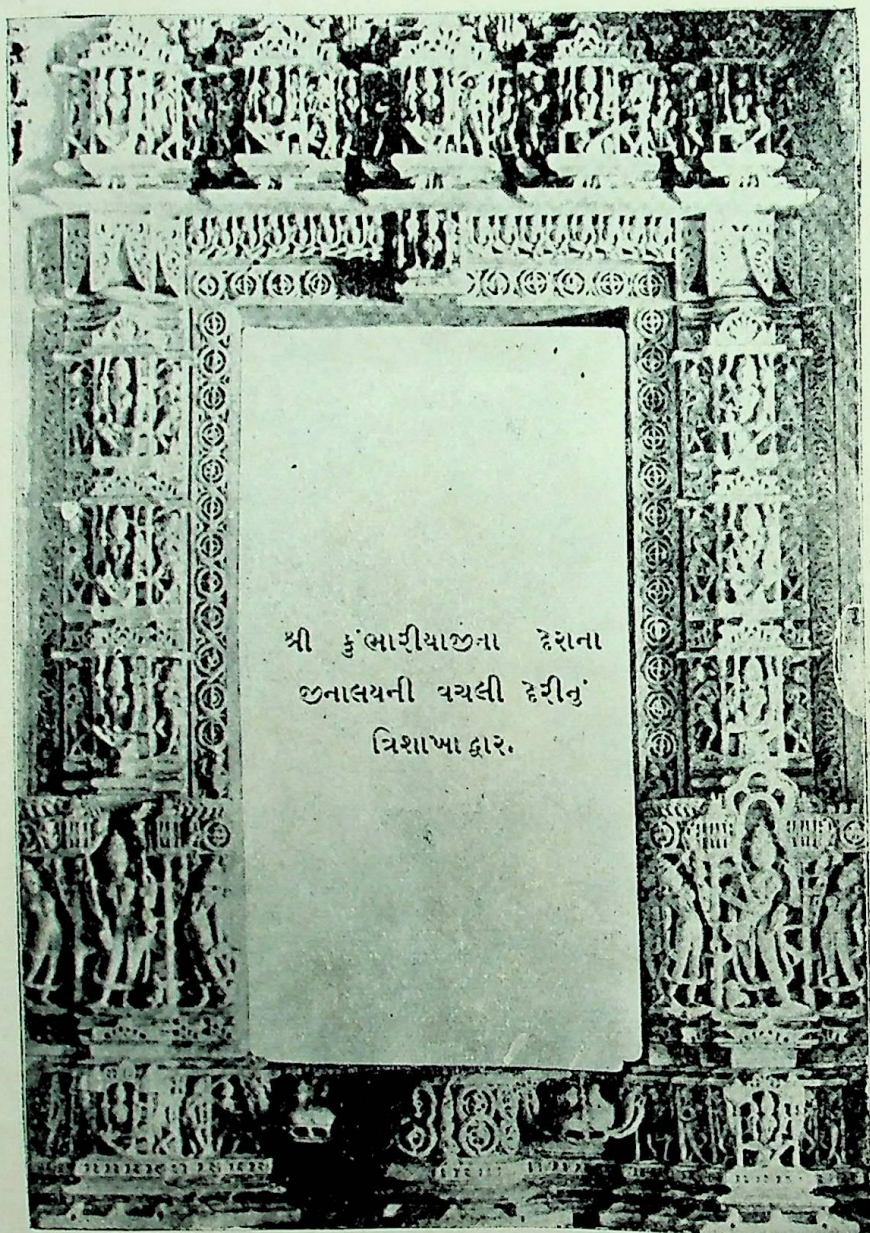 શ્રી કુંભારીયાજીના દેરાના
જીનાલયની વચલી દેરીનું
ત્રિશાખા દ્વાર.